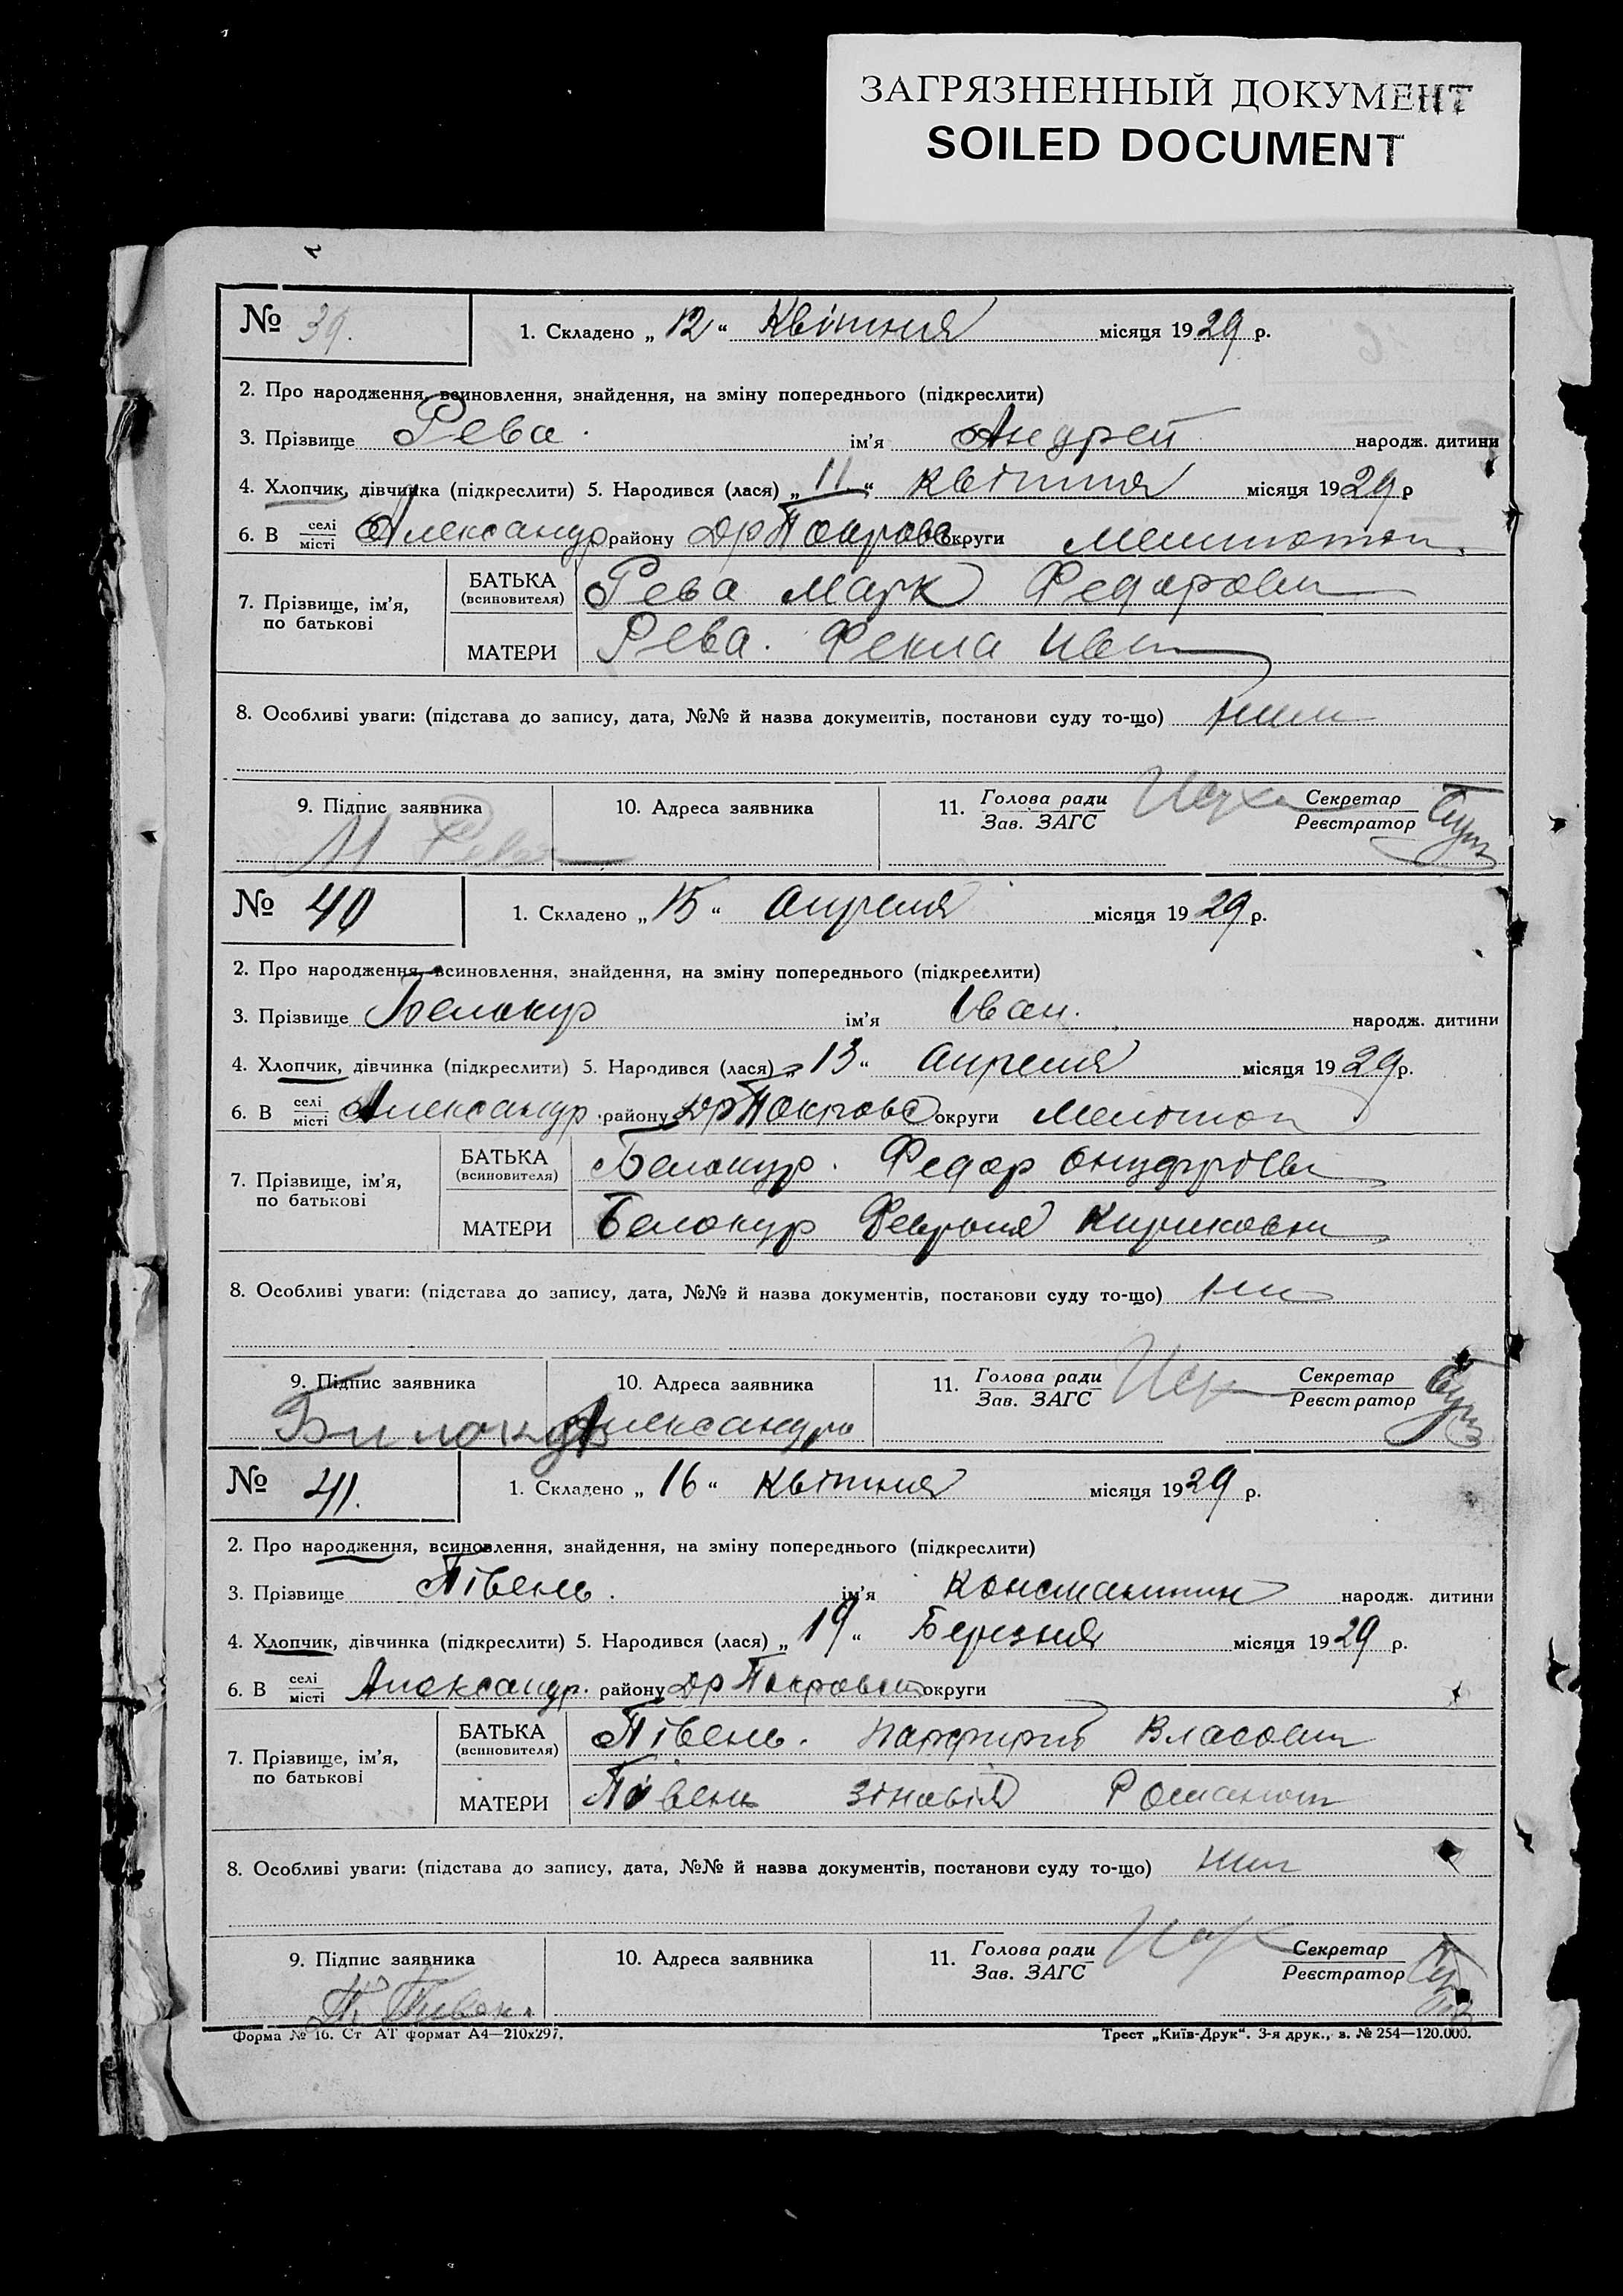 ЗАГРЯЗНЕННЫЙ ДОКУМЕНТ
SOILED DOCUMENT
№ 39.
1. Складено „ 12 “ Квітния місяця 1929 р.
2. Про народження, всиновлення, знайдення, на зміну попереднього (підкреслити)
3. Прізвище Рева. ім’я Андрей народж. дитини
4. Хлопчик, дівчинка (підкреслити) 5. Народився (лася) „ 11 “ Квітния місяця 1929 р
6. В селі місті Александр району округи
7. Прізвище, ім’я, по батькові
БАТЬКА (всиновителя) Рева Марк Федорови
МАТЕРИ Рева. Фекла Иван
8. Особливі уваги: (підстава до запису, дата, №№ й назва документів, постанови суду то-що)
9. Підпис заявника 10. Адреса заявника 11. Голова ради Зав. ЗАГС Секретар Реєстратор
М Рева
№ 40
1. Складено „ 15 “ апреля місяця 1929 р.
2. Про народження, всиновлення, знайдення, на зміну попереднього (підкреслити)
3. Прізвище Белокур ім’я Иван. народж. дитини
4. Хлопчик, дівчинка (підкреслити) 5. Народився (лася) „ 13 “ апреля місяця 1929 р.
6. В селі місті Александр. району округи Мелітоп
7. Прізвище, ім’я, по батькові
БАТЬКА (всиновителя) Белокур. Федор Онуфріеви
МАТЕРИ Белокур Феврония Кириковн
8. Особливі уваги: (підстава до запису, дата, №№ й назва документів, постанови суду то-що)
9. Підпис заявника 10. Адреса заявника 11. Голова ради Зав. ЗАГС Секретар Реєстратор
Билокур Александро
№ 41.
1. Складено „ 16 “ Квітния місяця 1929 р.
2. Про народження, всиновлення, знайдення, на зміну попереднього (підкреслити)
3. Прізвище Півень. ім’я Константин народж. дитини
4. Хлопчик, дівчинка (підкреслити) 5. Народився (лася) „ 19 “ Березня місяця 1929 р.
6. В селі місті Александр. району округи
7. Прізвище, ім’я, по батькові
БАТЬКА (всиновителя) Півень. Власови
МАТЕРИ Півень Зіновія Романовн
8. Особливі уваги: (підстава до запису, дата, №№ й назва документів, постанови суду то-що)
9. Підпис заявника 10. Адреса заявника 11. Голова ради Зав. ЗАГС Секретар Реєстратор
П. Пивень
Форма № 16. Ст АТ формат А4—210х297. Трест „Київ-Друк“. 3-я друк., з. № 254—120.000.